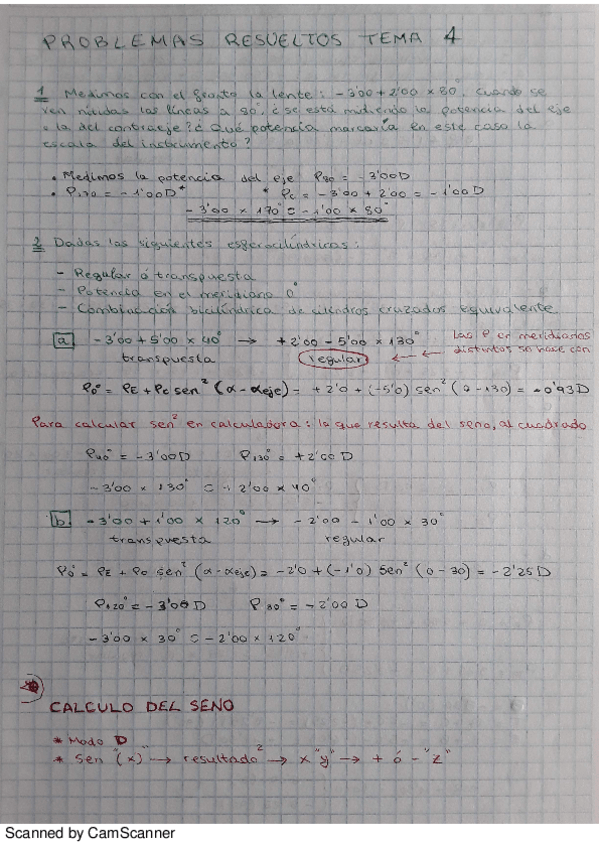 PROBLEMAS RESUELTOS TEMA 4
1 Medimos con el fronto la lente: -3'00+2'00 x 80°. Cuando se
ven nítidas las líneas a 80°, ¿se está midiendo la potencia del eje
o la del contraeje? ¿Qué potencia marcaría en este caso la
escala del instrumento?
• Medimos la potencia del eje P80 = -3'00D
• P170 = -1'00D * * Pc = -3'00 + 2'00 = -1'00D
-3'00 x 170° = -1'00 x 80°
2 Dadas las siguientes esferocilíndricas:
- Regular ó transpuesta
- Potencia en el meridiano 0°
- Combinación bicilíndrica de cilindros cruzados equivalente
a -3'00 + 5'00 x 40° → +2'00 - 5'00 x 130° Las P en meridianos
transpuesta regular ← ← distintos se hace con
P0° = PE + Pc sen² (α - αeje) = +2'0 + (-5'0) sen² (0-130) = -0'93D
Para calcular sen² en calculadora: lo que resulta del seno, al cuadrado
P40° = -3'00D P130° = +2'00 D
-3'00 x 130° = +2'00 x 40°
b -3'00 + 1'00 x 120° → -2'00 - 1'00 x 30°
transpuesta regular
P0° = PE + Pc sen² (α - αeje) = -2'0 + (-1'0) sen² (0-30) = -2'25D
P120° = -3'00 D P30° = -2'00 D
-3'00 x 30° = -2'00 x 120°
CALCULO DEL SENO
* Modo D
* Sen "(x)" → resultado² → x "y" → + ó - "z"
Scanned by CamScanner